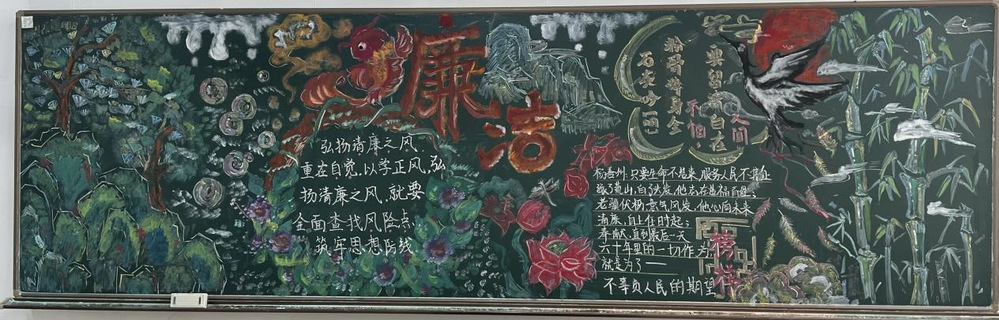 廉洁
弘扬清廉之风,
重在自觉,以学正风,弘
扬清廉之风,就要
全面查找风险点
筑牢思想防线
粉骨碎身全
不怕
要留清白在
人间
石灰吟
杨善洲,只要生命不结束,服务人民不
老骥伏枥意气风发,他心向未来
清廉,自上任时起;
奉献,直到最后一天
六十年里的一切作为
就是为了——
不辜负人民的期望
榜样